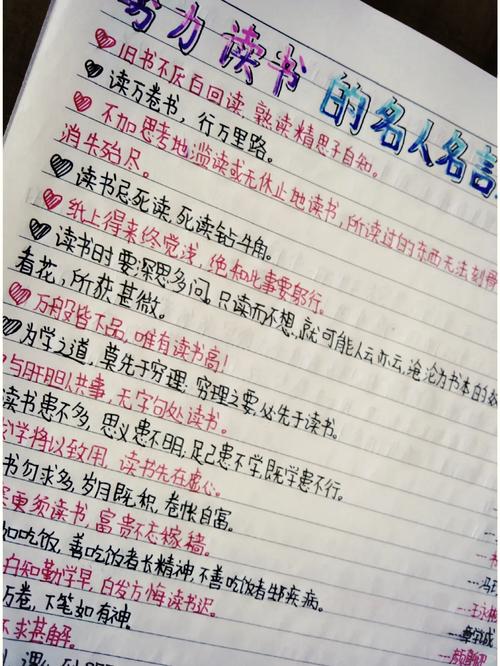 努力读书的名人名言
旧书不厌百回读，熟读精思子自知。
读万卷书，行万里路。
不加思考地滥读或无休止地读书，所读过的东西无法刻骨
消失殆尽。
读书忌死读，死读钻牛角。
纸上得来终觉浅，绝知此事要躬行。
读书时要深思多问。只读而不想，就可能人云亦云，沦为书本的奴
看花，所获甚微。
万般皆下品，唯有读书高！
为学之道，莫先于穷理，穷理之要，必先于读书。
与肝胆人共事，无字句处读书。
读书患不多，思义患不明，足己患不学，既学患不行。
学将以致用，读书先在虚心。
书勿求多，岁月既积，卷帙自富。
更须读书，富贵不忘稼穑。
如吃饭，善吃饭者长精神，不善吃饭者生疾病。
白知勤学早，白发方悔读书迟。
万卷，下笔如有神。
不求甚解。